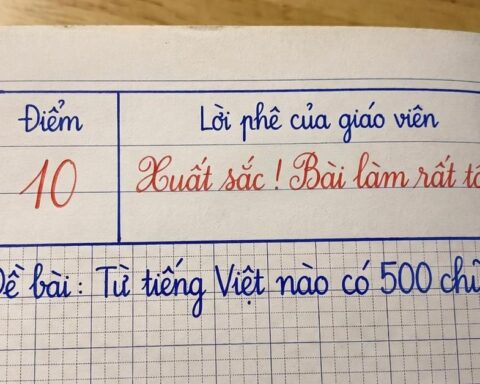 Điểm
Lời phê của giáo viên
10
Xuất sắc! Bài làm rất
bài: Từ tiếng Việt nào có 500